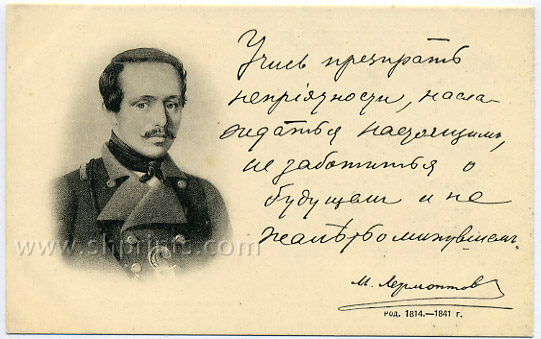 Учись презирать
непріятности, насла-
ждаться настоящимъ,
не заботиться о
будущемъ и не
жалѣть о минувшемъ.
М. Лермонтовъ
РОД. 1814.—1841 г.
www.shprints.com